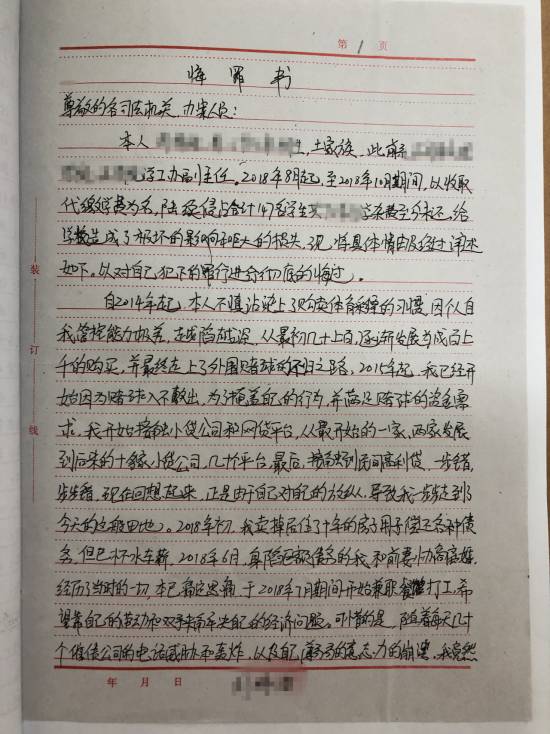 第 1 页
悔罪书
尊敬的各司法机关、办案人员：
本人 土家族，此前系
学工办副主任。2018年8月起，至2018年10月期间，以收取
代缴学费为名，陆续侵占合计147名学生 学费至今未还，给
学校造成了极坏的影响和巨大的损失，现将具体情由及经过详述
如下。以对自己犯下的罪行进行彻底的悔过。
自2014年起，本人不慎沾染上了购买体育彩票的习惯，因个人自
我管控能力极差，越陷越深，从最初几十上百，逐渐发展为成百上
千的购买，并最终走上了外围赌球的不归之路。2015年起，我已经开
始因为赌球入不敷出，为了掩盖自己的行为，并满足赌球的资金需
求，我开始接触小贷公司和网贷平台，从最开始的一家、两家发展
到后来的十several小贷公司，几十个平台，最后，接触到民间高利贷，一步错，
步步错，现在回想起来，正是由于自己对自己的放纵，导致我一步步走到了
今天的这般田地。2018年初，我卖掉居住了十年的房子用于偿还各种债
务，但已杯水车薪，2018年6月，身陷巨额债务的我，和前妻协商离婚，
经历了当时的一切，本已痛定思痛，于2018年7月期间开始兼职 打工，希
望靠自己的劳动和双手来解决自己的经济问题。可惜的是，随着每天几十
个催债公司的电话威胁和轰炸，以及自己 的意志力的崩溃，我竟然
年 月 日
装
订
线